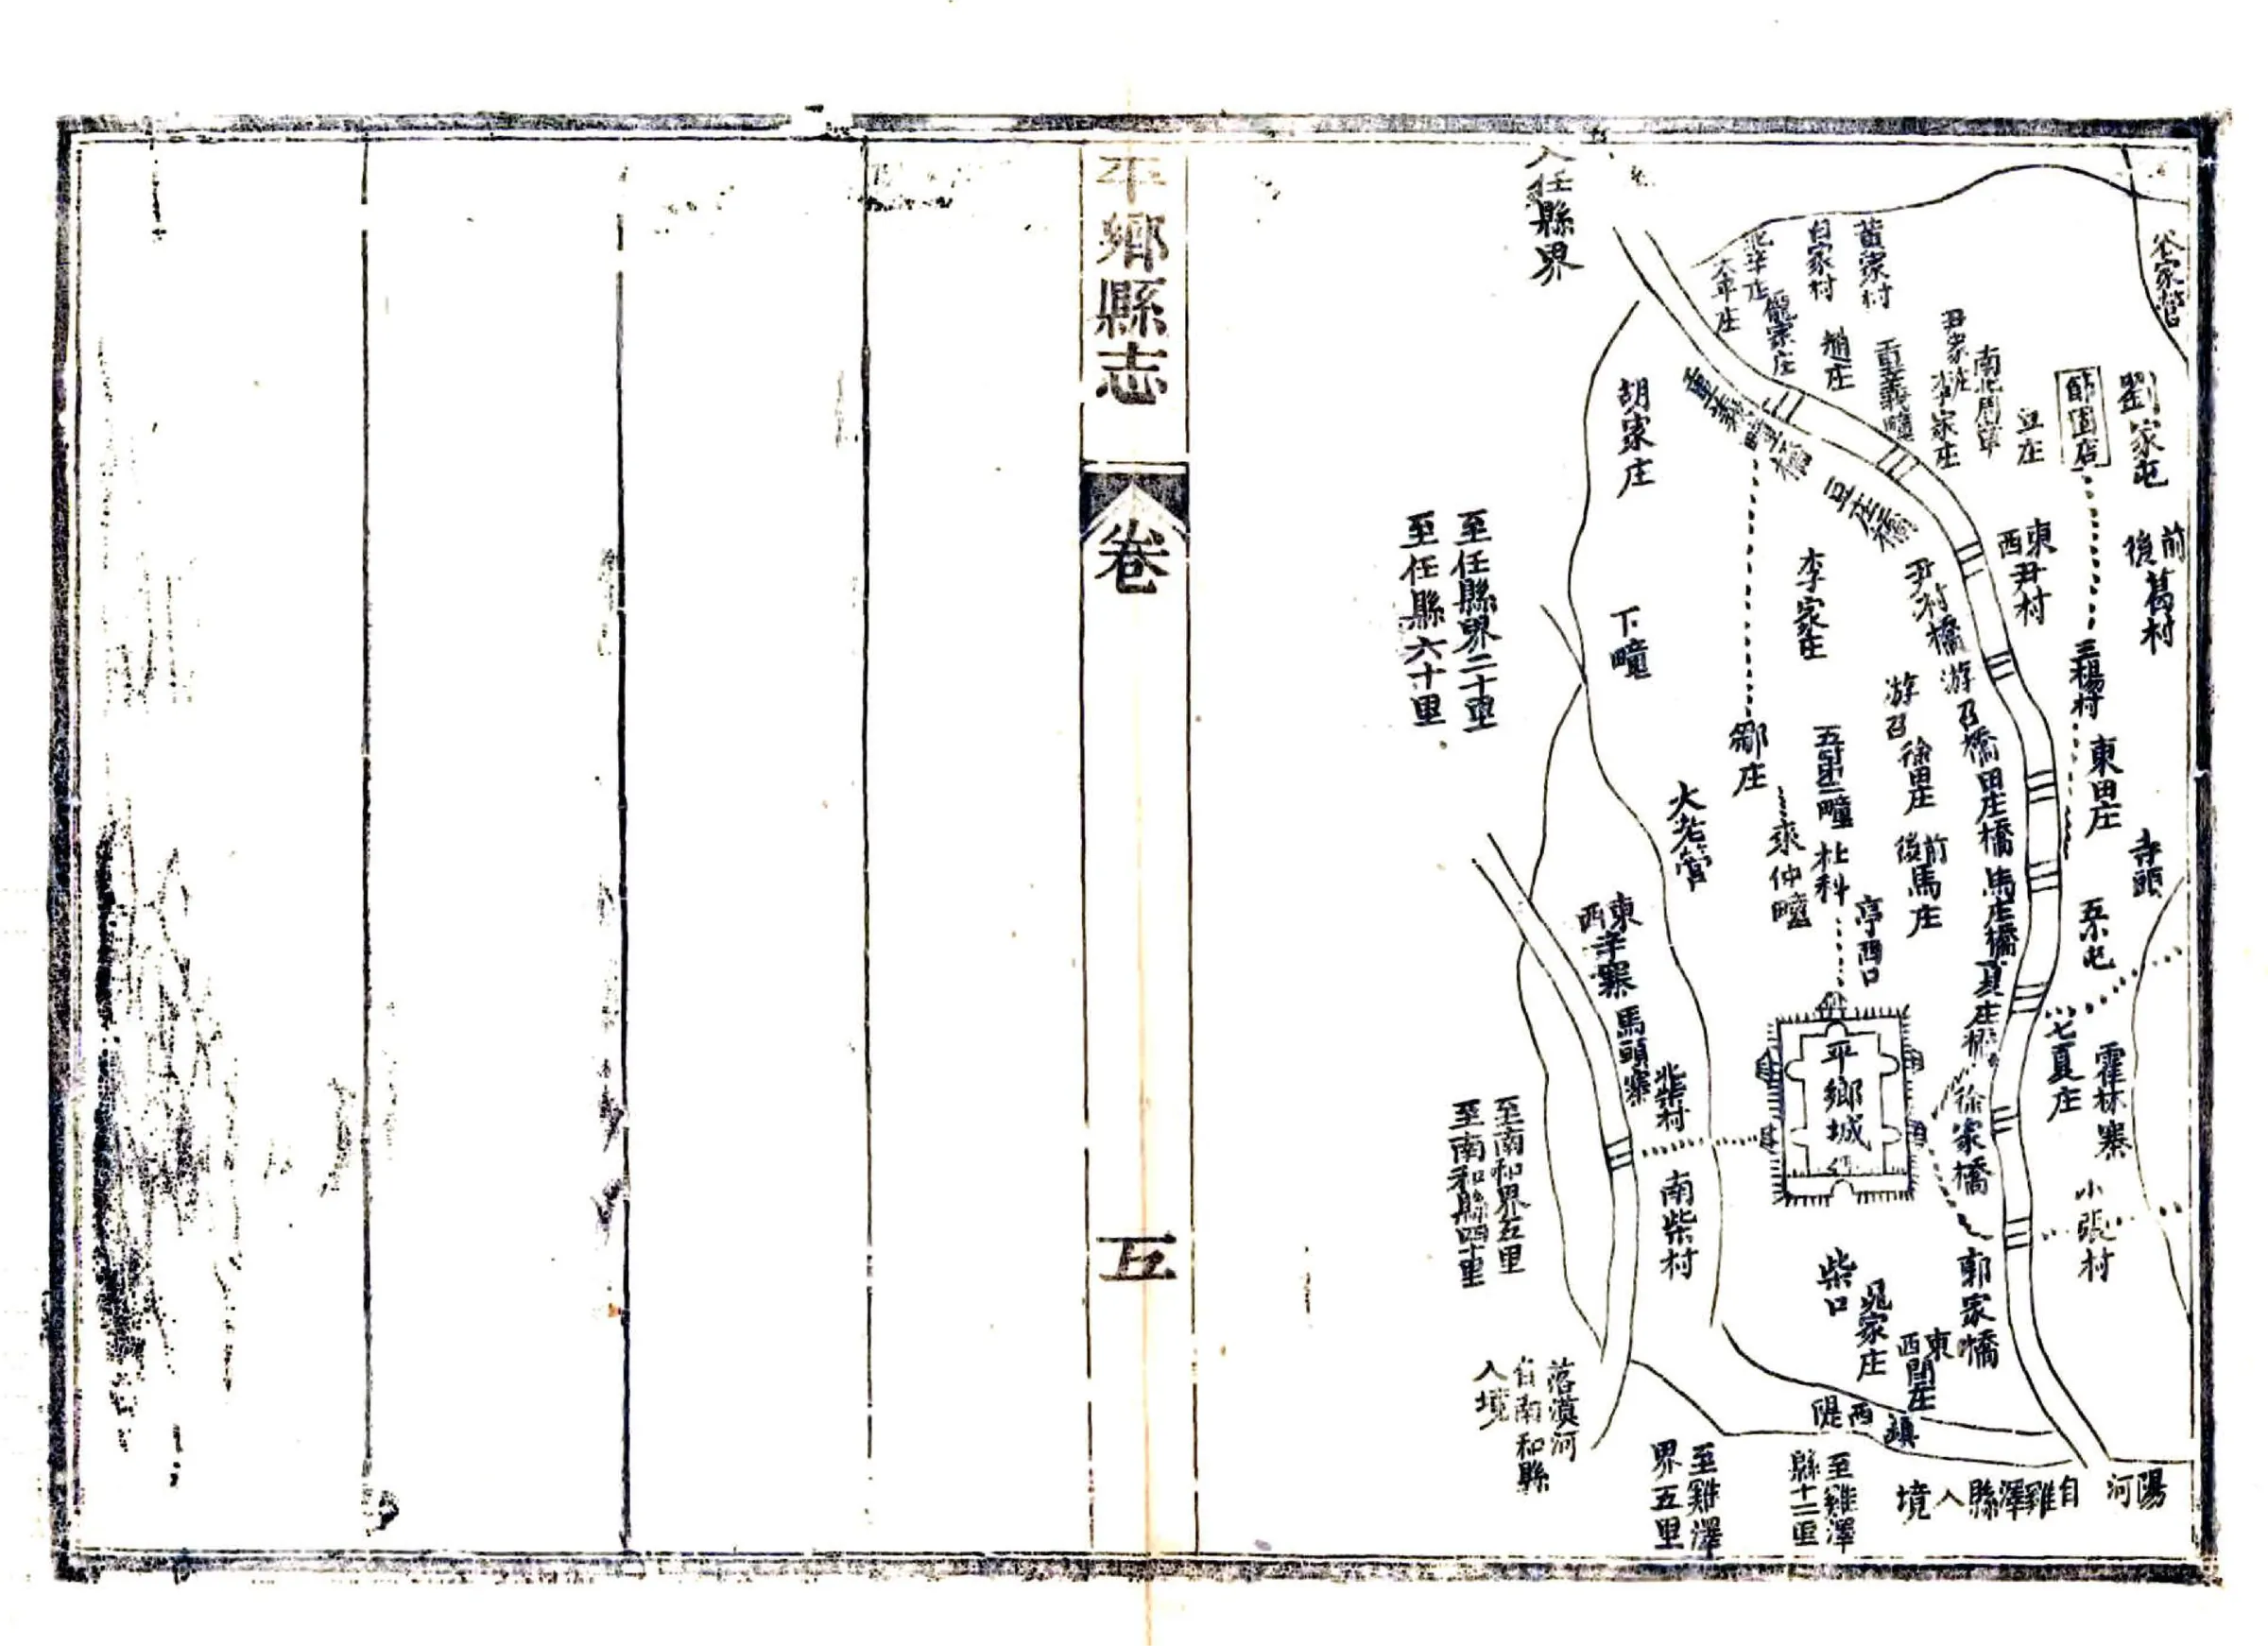 谷家營
劉家屯
前後葛村
寺頭
節固店
三楊村
東田庄
霍林寨
小張村
七夏庄
豆庄
東西尹村
南北周章
尹家庄
李家庄
重義疃
苗家村
趙庄
白家村
龐家庄
大辛庄
入任縣界
重義疃橋
豆庄橋
尹村橋
游召橋
田庄橋
馬庄橋
夏庄橋
徐家橋
郭家橋
胡家庄
李家庄
下疃
游召
徐田庄
前後馬庄
鄒庄
杜科
亭西口
乘仲疃
大老營
東西辛寨
馬頭寨
北柴村
南柴村
平鄉城
柴口
東西閆庄
西堤
至任縣界二十里
至任縣六十里
至南和界五里
至南和縣四十里
落漠河
自南和縣
入境
至雞澤
界五里
至雞澤
縣十二里
陽河
自雞澤縣入境
平鄉縣志
卷
五